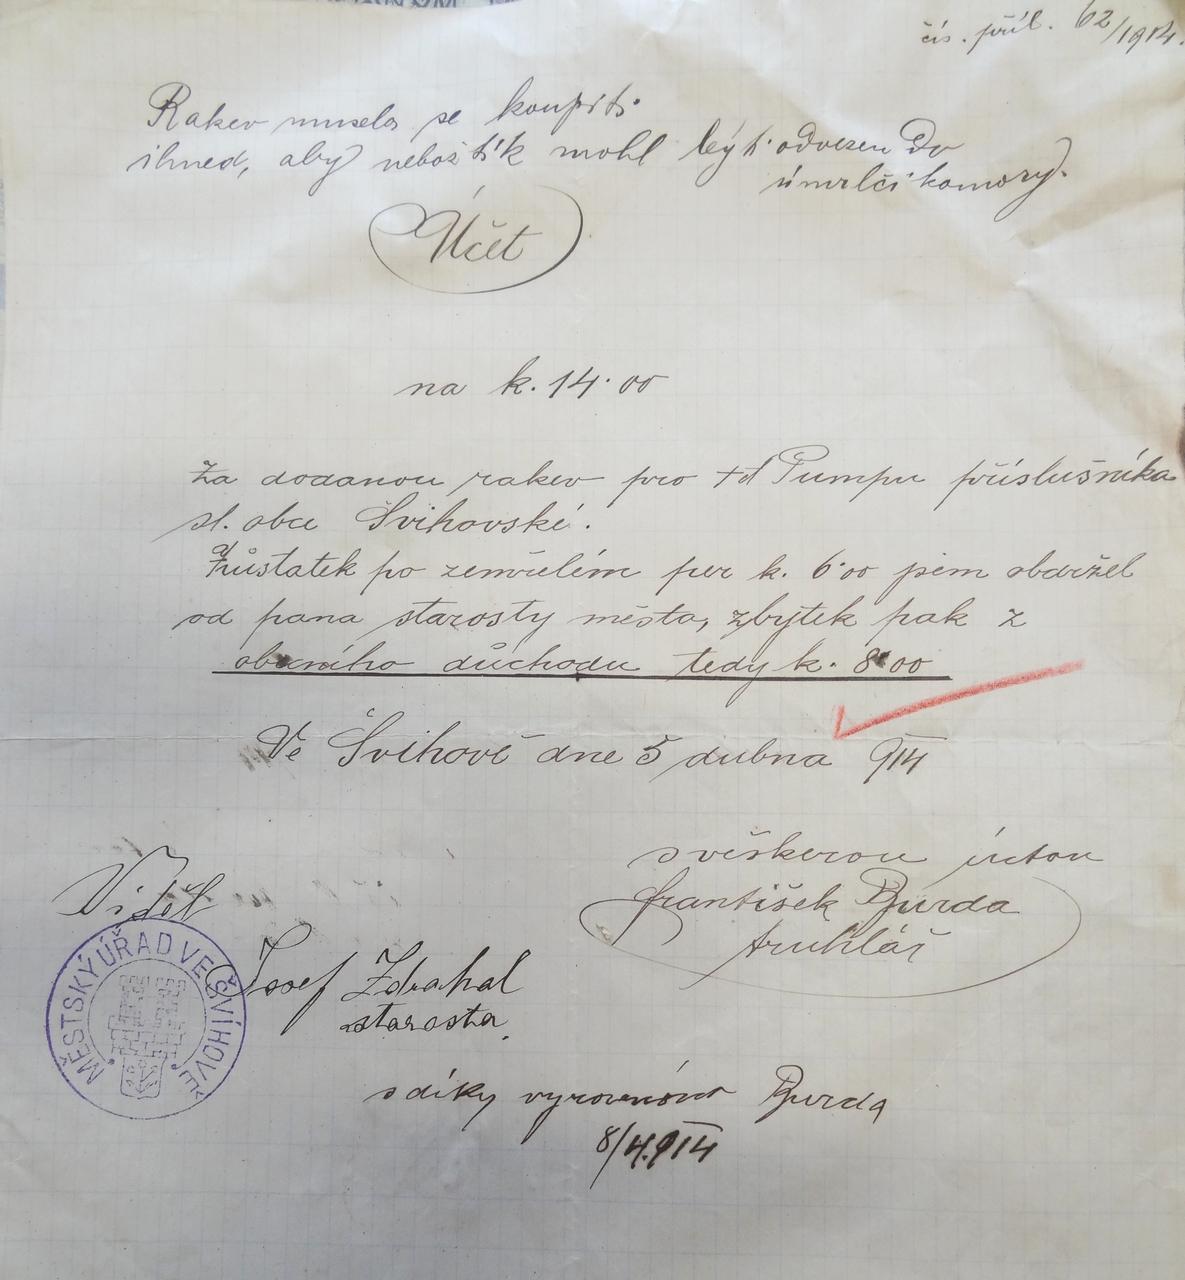 čís. příl. 62/1914.
Rakev musela se koupiti
ihned, aby nebožtík mohl býti odvezen do
úmrlčí komory.
Účet
na k. 14·00
Za dodanou rakev pro Pumpu příslušníka
sl. obce Švihovské.
Zůstatek po zemřelém per k. 6·00 jsem obdržel
od pana starosty města, zbytek pak z
obecního důchodu tedy k. 8·00
Ve Švihově dne 5 dubna 914
s veškerou úctou
František Burda
truhlář
Viděl
MĚSTSKÝ ÚŘAD VE ŠVÍHOVĚ
Josef Zdrahal
starosta
s díky vyrovnáno Burda
8/4.914